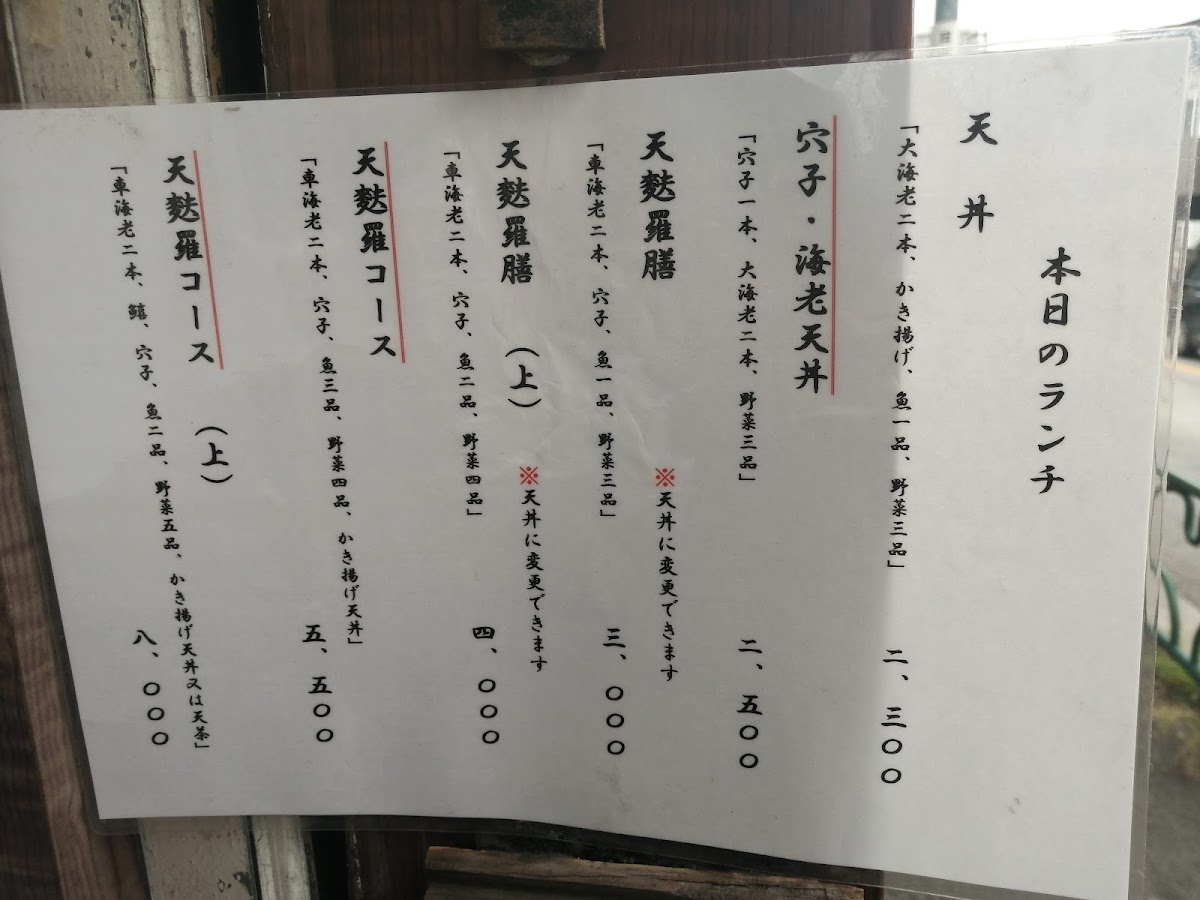 本日のランチ
天丼
「大海老二本、かき揚げ、魚一品、野菜三品」 二、三〇〇
穴子・海老天丼
「穴子一本、大海老二本、野菜三品」 二、五〇〇
天麩羅膳 ※天丼に変更できます
「車海老二本、穴子、魚一品、野菜三品」 三、〇〇〇
天麩羅膳(上) ※天丼に変更できます
「車海老二本、穴子、魚二品、野菜四品」 四、〇〇〇
天麩羅コース
「車海老二本、穴子、魚三品、野菜四品、かき揚げ天丼」 五、五〇〇
天麩羅コース(上)
「車海老二本、鱚、穴子、魚二品、野菜五品、かき揚げ天丼又は天茶」 八、〇〇〇